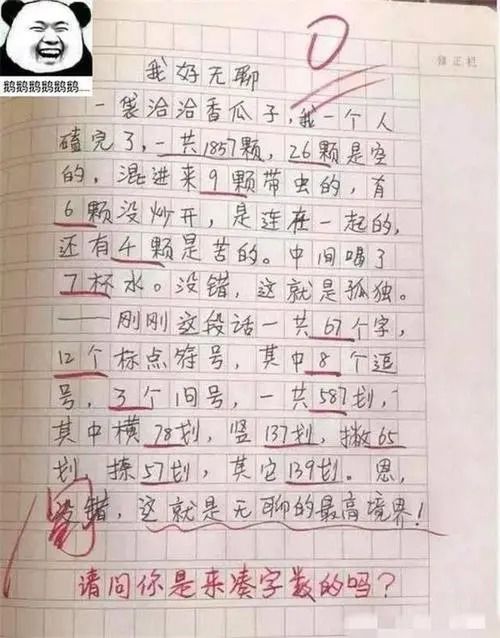 鹅鹅鹅鹅鹅鹅......
修正栏
0
我好无聊
一袋洽洽香瓜子，我一个人
磕完了，一共1857颗，26颗是空
的，混进来9颗带虫的，有
6颗没炒开，是连在一起的，
还有4颗是苦的。中间喝了
7杯水。没错，这就是孤独。
——刚刚这段话一共67个字，
12个标点符号，其中8个逗
号，3个问号，一共587划，
其中横78划，竖137划，撇65
划，捺57划，其它139划。恩，
没错，这就是无聊的最高境界！
阅
请问你是来凑字数的吗？